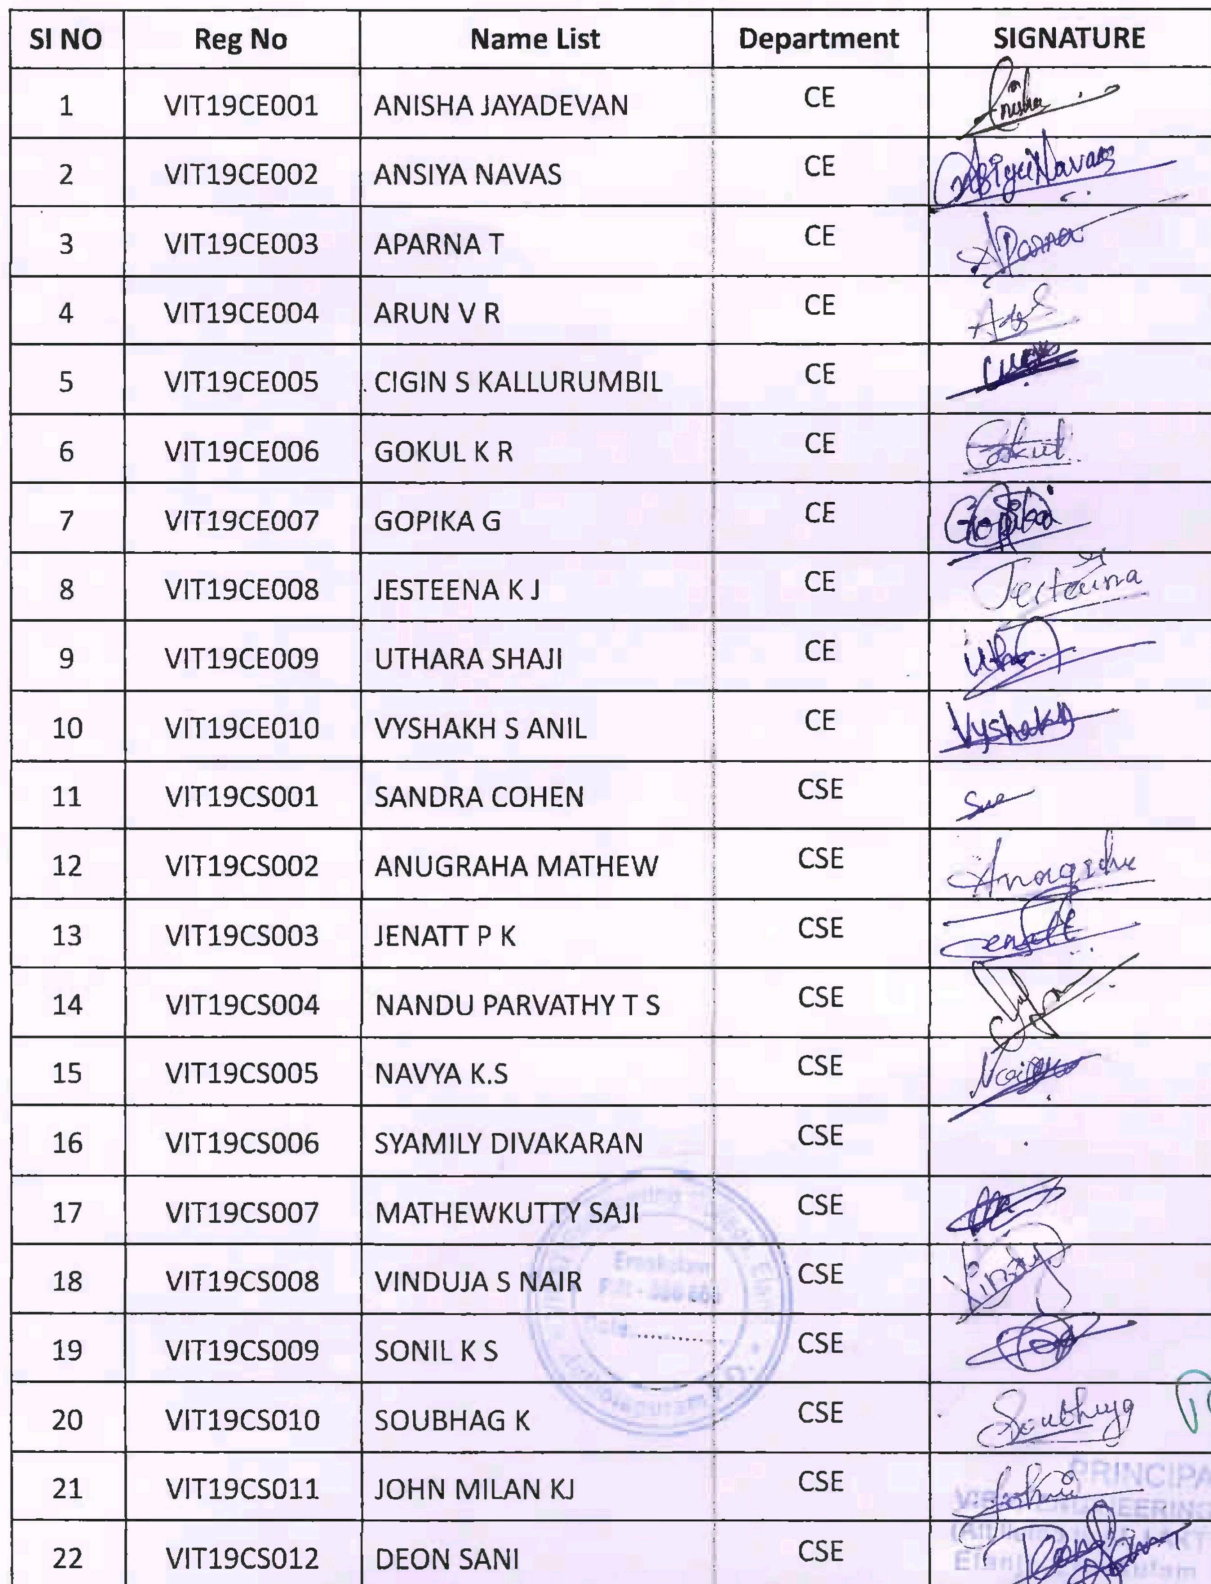 SI NO Reg No Name List Department SIGNATURE
1 VIT19CE001 ANISHA JAYADEVAN CE Anisha
2 VIT19CE002 ANSIYA NAVAS CE Navas
3 VIT19CE003 APARNA T CE Aparna
4 VIT19CE004 ARUN V R CE
5 VIT19CE005 CIGIN S KALLURUMBIL CE
6 VIT19CE006 GOKUL K R CE Gokul
7 VIT19CE007 GOPIKA G CE Gopika
8 VIT19CE008 JESTEENA K J CE
9 VIT19CE009 UTHARA SHAJI CE
10 VIT19CE010 VYSHAKH S ANIL CE Vyshakh
11 VIT19CS001 SANDRA COHEN CSE
12 VIT19CS002 ANUGRAHA MATHEW CSE
13 VIT19CS003 JENATT P K CSE Jenatt
14 VIT19CS004 NANDU PARVATHY T S CSE
15 VIT19CS005 NAVYA K.S CSE
16 VIT19CS006 SYAMILY DIVAKARAN CSE
17 VIT19CS007 MATHEWKUTTY SAJI CSE
18 VIT19CS008 VINDUJA S NAIR CSE
19 VIT19CS009 SONIL K S CSE
20 VIT19CS010 SOUBHAG K CSE
21 VIT19CS011 JOHN MILAN KJ CSE
PRINCIPA
22 VIT19CS012 DEON SANI CSE